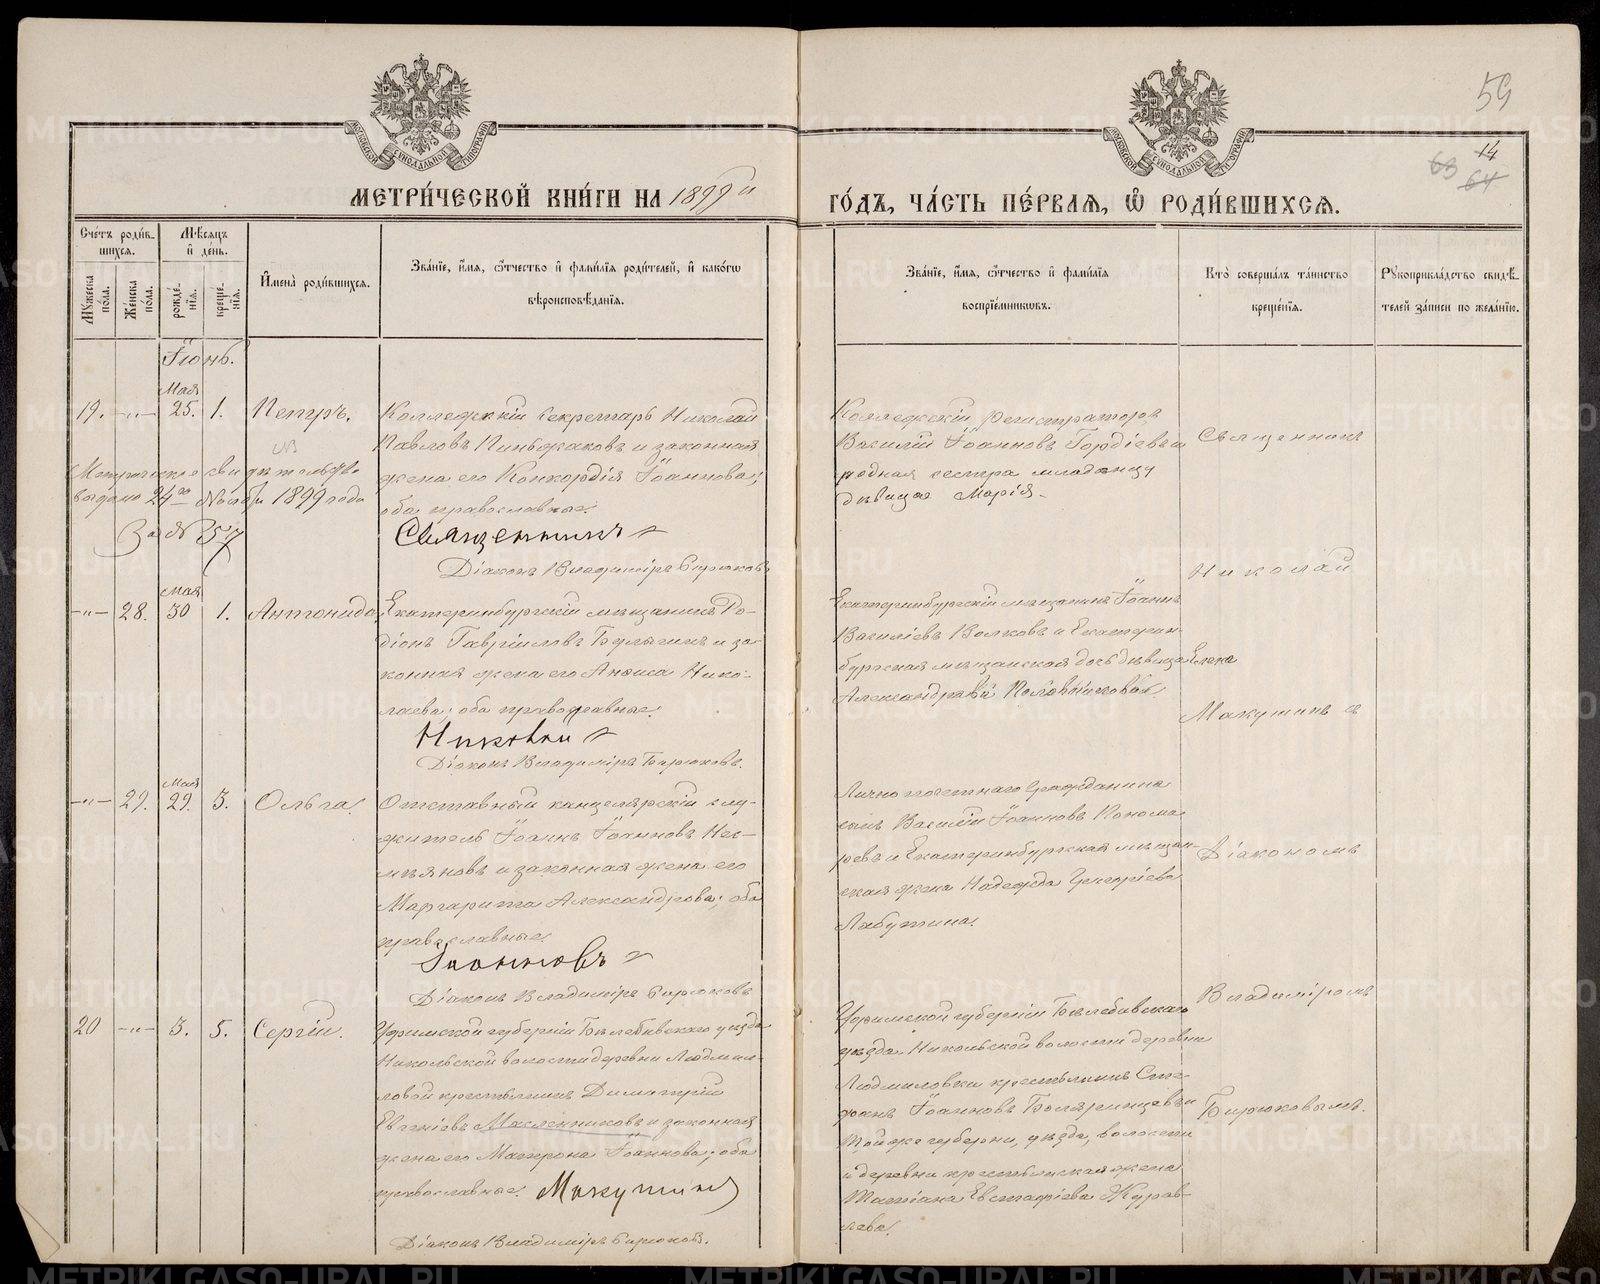 59
14
63 64
МОСКОВСКОЙ СѴНОДАЛЬНОЙ ТИПОГРАФІИ
МОСКОВСКОЙ СѴНОДАЛЬНОЙ ТИПОГРАФІИ
МЕТРИ́ЧЕСКОЙ КНИ́ГИ НА 1899й ГО́ДЪ, ЧА́СТЬ ПЕ́РВАѦ, Ѡ҆ РОДИ́ВШИХСѦ.
Сче́тъ роди́вшихсѧ.
Мꙋ́жеска по́ла.
Же́нска по́ла.
Мѣ́сѧцъ и҆ де́нь.
рожде́нїѧ.
креще́нїѧ.
И҆мена̀ роди́вшихсѧ.
Зва́нїе, и҆́мѧ, ѻ҆́тчество и҆ фами́лїѧ роди́телей, и҆ како́гѡ
вѣроисповѣ́данїѧ.
Зва́нїе, и҆́мѧ, ѻ҆́тчество и҆ фами́лїѧ
воспрїе́мникѡвъ.
Кто̀ соверша́лъ та́инство
креще́нїѧ.
Рꙋкоприкла́дство свидѣ́телей за́писи по жела́нїю.
Іюнь.
Мая
19. —„— 25. 1. Петръ.
Коллежскій Секретарь Николай
Павловъ Пиньжаковъ и законная
жена его Конкордія Іоаннова;
оба православные.
Священникъ
Діаконъ Владиміръ Бирюковъ
Метрическое свидѣтельство
выдано 24го Ноября 1899 года
За № 257
Коллежскій Регистраторъ
Василій Іоанновъ Гордіевъ и
родная сестра младенцу
дѣвица Марія.
Священникъ
Николай
Макушинъ съ
Діакономъ
Владиміромъ
Бирюковымъ.
Мая
—„— 28. 30 1. Антонида
Екатеринбургскій мѣщанинъ Ро-
діонъ Гавріиловъ и за-
конная жена его Аниса Нико-
лаева; оба православные.
Николай
Діаконъ Владиміръ Бирюковъ.
Екатеринбургскій мѣщанинъ Іоаннъ
Василіевъ Волковъ и Екатерин-
бургская мѣщанская дочь дѣвица Елена
Александрова Половникова.
Мая
—„— 29. 29. 3. Ольга.
Отставный канцелярскій слу-
житель Іоаннъ Іоанновъ Нев-
мѣяновъ и законная жена его
Маргарита Александрова; оба
православные.
Діаконъ Владиміръ Бирюковъ
Лично почетнаго гражданина
сынъ Василій Іоанновъ Понома-
ревъ и Екатеринбургская мѣщан-
ская жена Надежда Григоріева
Лабутина.
20 —„— 3. 5. Сергій.
Уфимской губерніи Белебевскаго уѣзда
Никольской волости деревни Людмил-
ловой крестьянинъ Димитрій
Евгеніевъ Масленниковъ и законная
жена его Матрона Іоаннова; оба
православные. Макушинъ
Діаконъ Владиміръ Бирюковъ.
Уфимской губерніи Белебевскаго
уѣзда Никольской волости деревни
Людмиловки крестьянинъ Сте-
фанъ Іоанновъ и
той же губерніи, уѣзда, волости
и деревни крестьянская жена
Татіана Евстафіева Журав-
лева.
METRIKI.GASO-URAL.RU